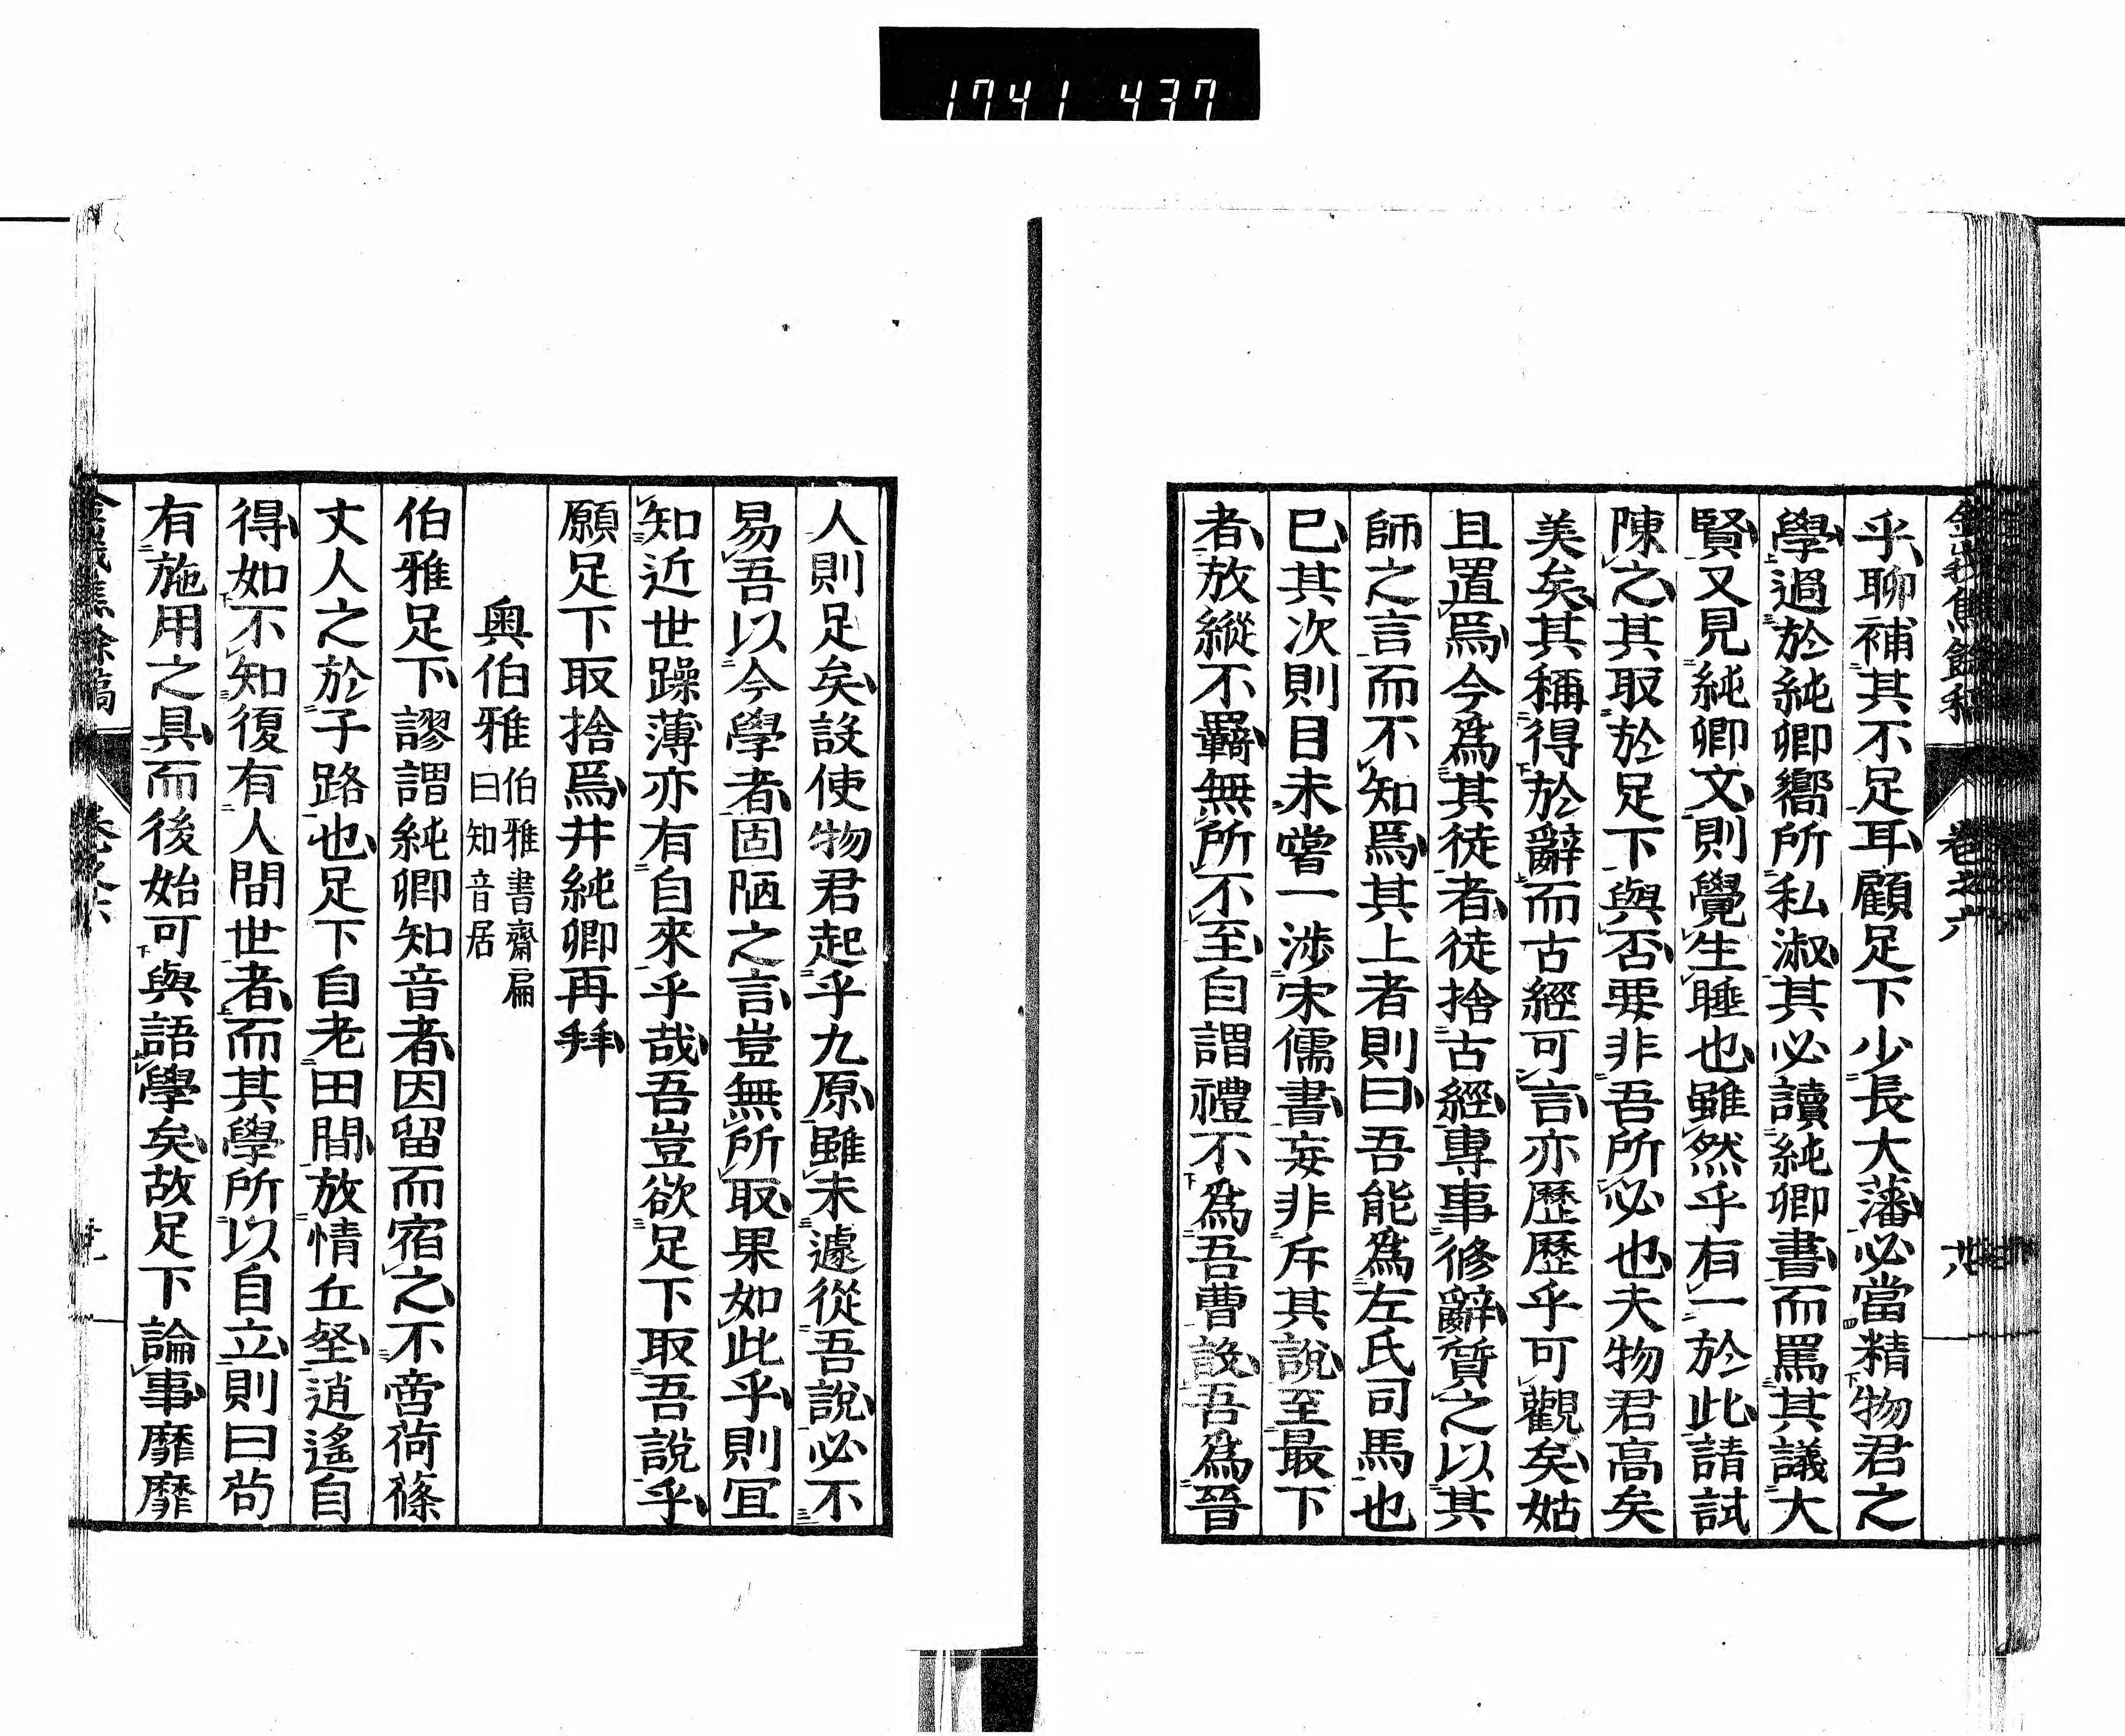 1741 437
金峨焦餘稿 卷之六 廿八
乎聊補其不足耳顧足下少長大藩必當精物君之
學過於純卿嚮所私淑其必讀純卿書而罵其議大
賢又見純卿文則覺生睡也雖然乎有一於此請試
陳之其取於足下與否要非吾所必也夫物君高矣
美矣其稱得於辭而古經可言亦歷歷乎可觀矣姑
且置焉今為其徒者徒捨古經專事修辭質之以其
師之言而不知焉其上者則曰吾能為左氏司馬也
已其次則目未嘗一涉宋儒書妄非斥其說至最下
者放縱不羈無所不至自謂禮不為吾曹設吾為晉
人則足矣設使物君起乎九原雖未遽從吾說必不
易吾以今學者固陋之言豈無所取果如此乎則冝
知近世躁薄亦有自來乎哉吾豈欲足下取吾說乎
願足下取捨焉井純卿再拜
奧伯雅 伯雅書齋扁曰知音居
伯雅足下謬謂純卿知音者因留而宿之不啻荷篠
丈人之於子路也足下自老田間放情丘壑逍遙自
得如不知復有人間世者而其學所以自立則曰苟
有施用之具而後始可與語學矣故足下論事靡靡